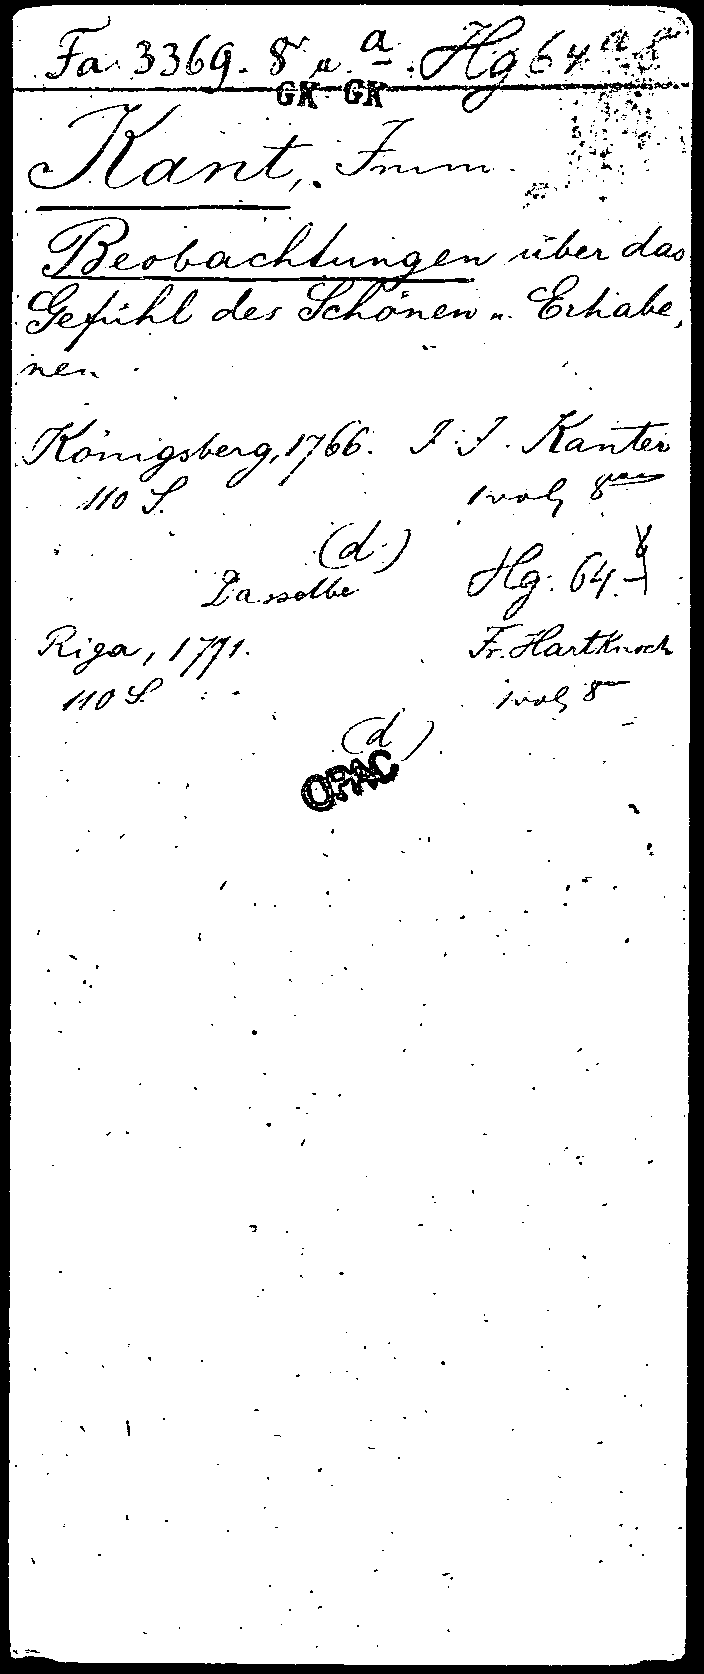 Fa 3369. 8° u. a. Hg 64
GK GK
Kant, Imm.
Beobachtungen über das
Gefühl des Schönen u. Erhabe,
nen
Königsberg, 1766. J. J. Kanter
110 S. 1 vol, 8
(d.)
Dasselbe Hg. 64.
Riga, 1771. Fr. Hartknoch
110 S. 1 vol, 8
(d)
OPAC